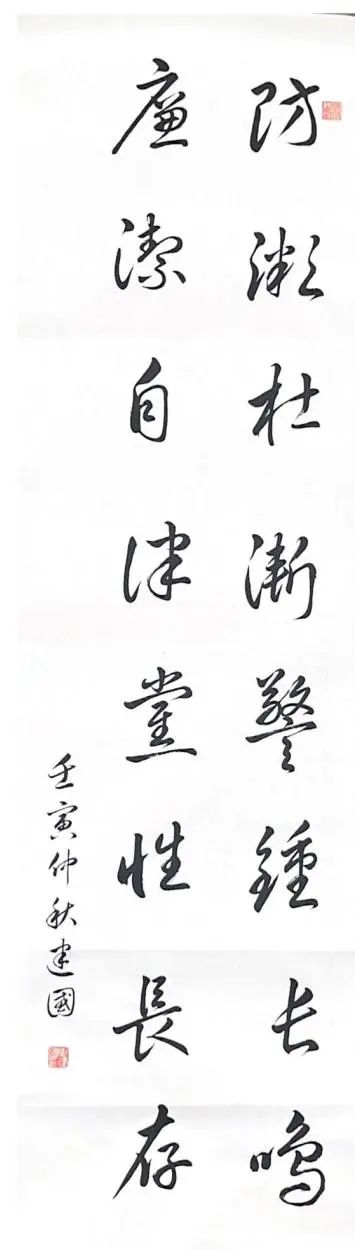 防微杜漸警鍾长鳴
廉潔自律黨性長存
壬寅仲秋建國